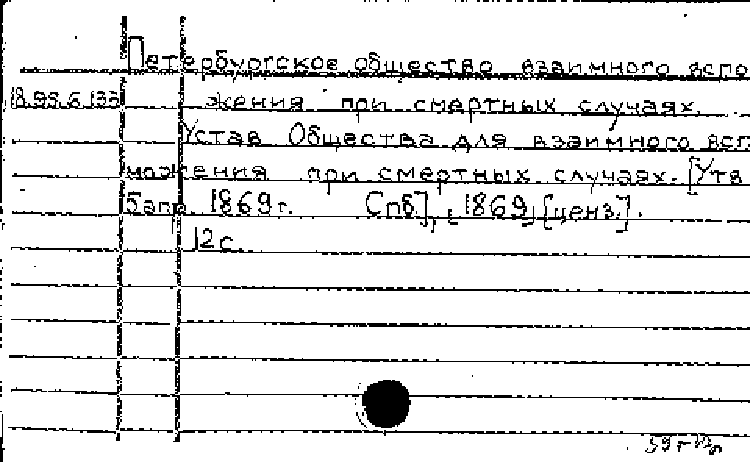 Петербургское общество взаимного вспо
18.99.6.135 жения при смертных случаях.
Устав Общества для взаимного всп
можения при смертных случаях. [Утв
5 апр. 1869 г. Спб], [1869] [ценз.].
12 с.